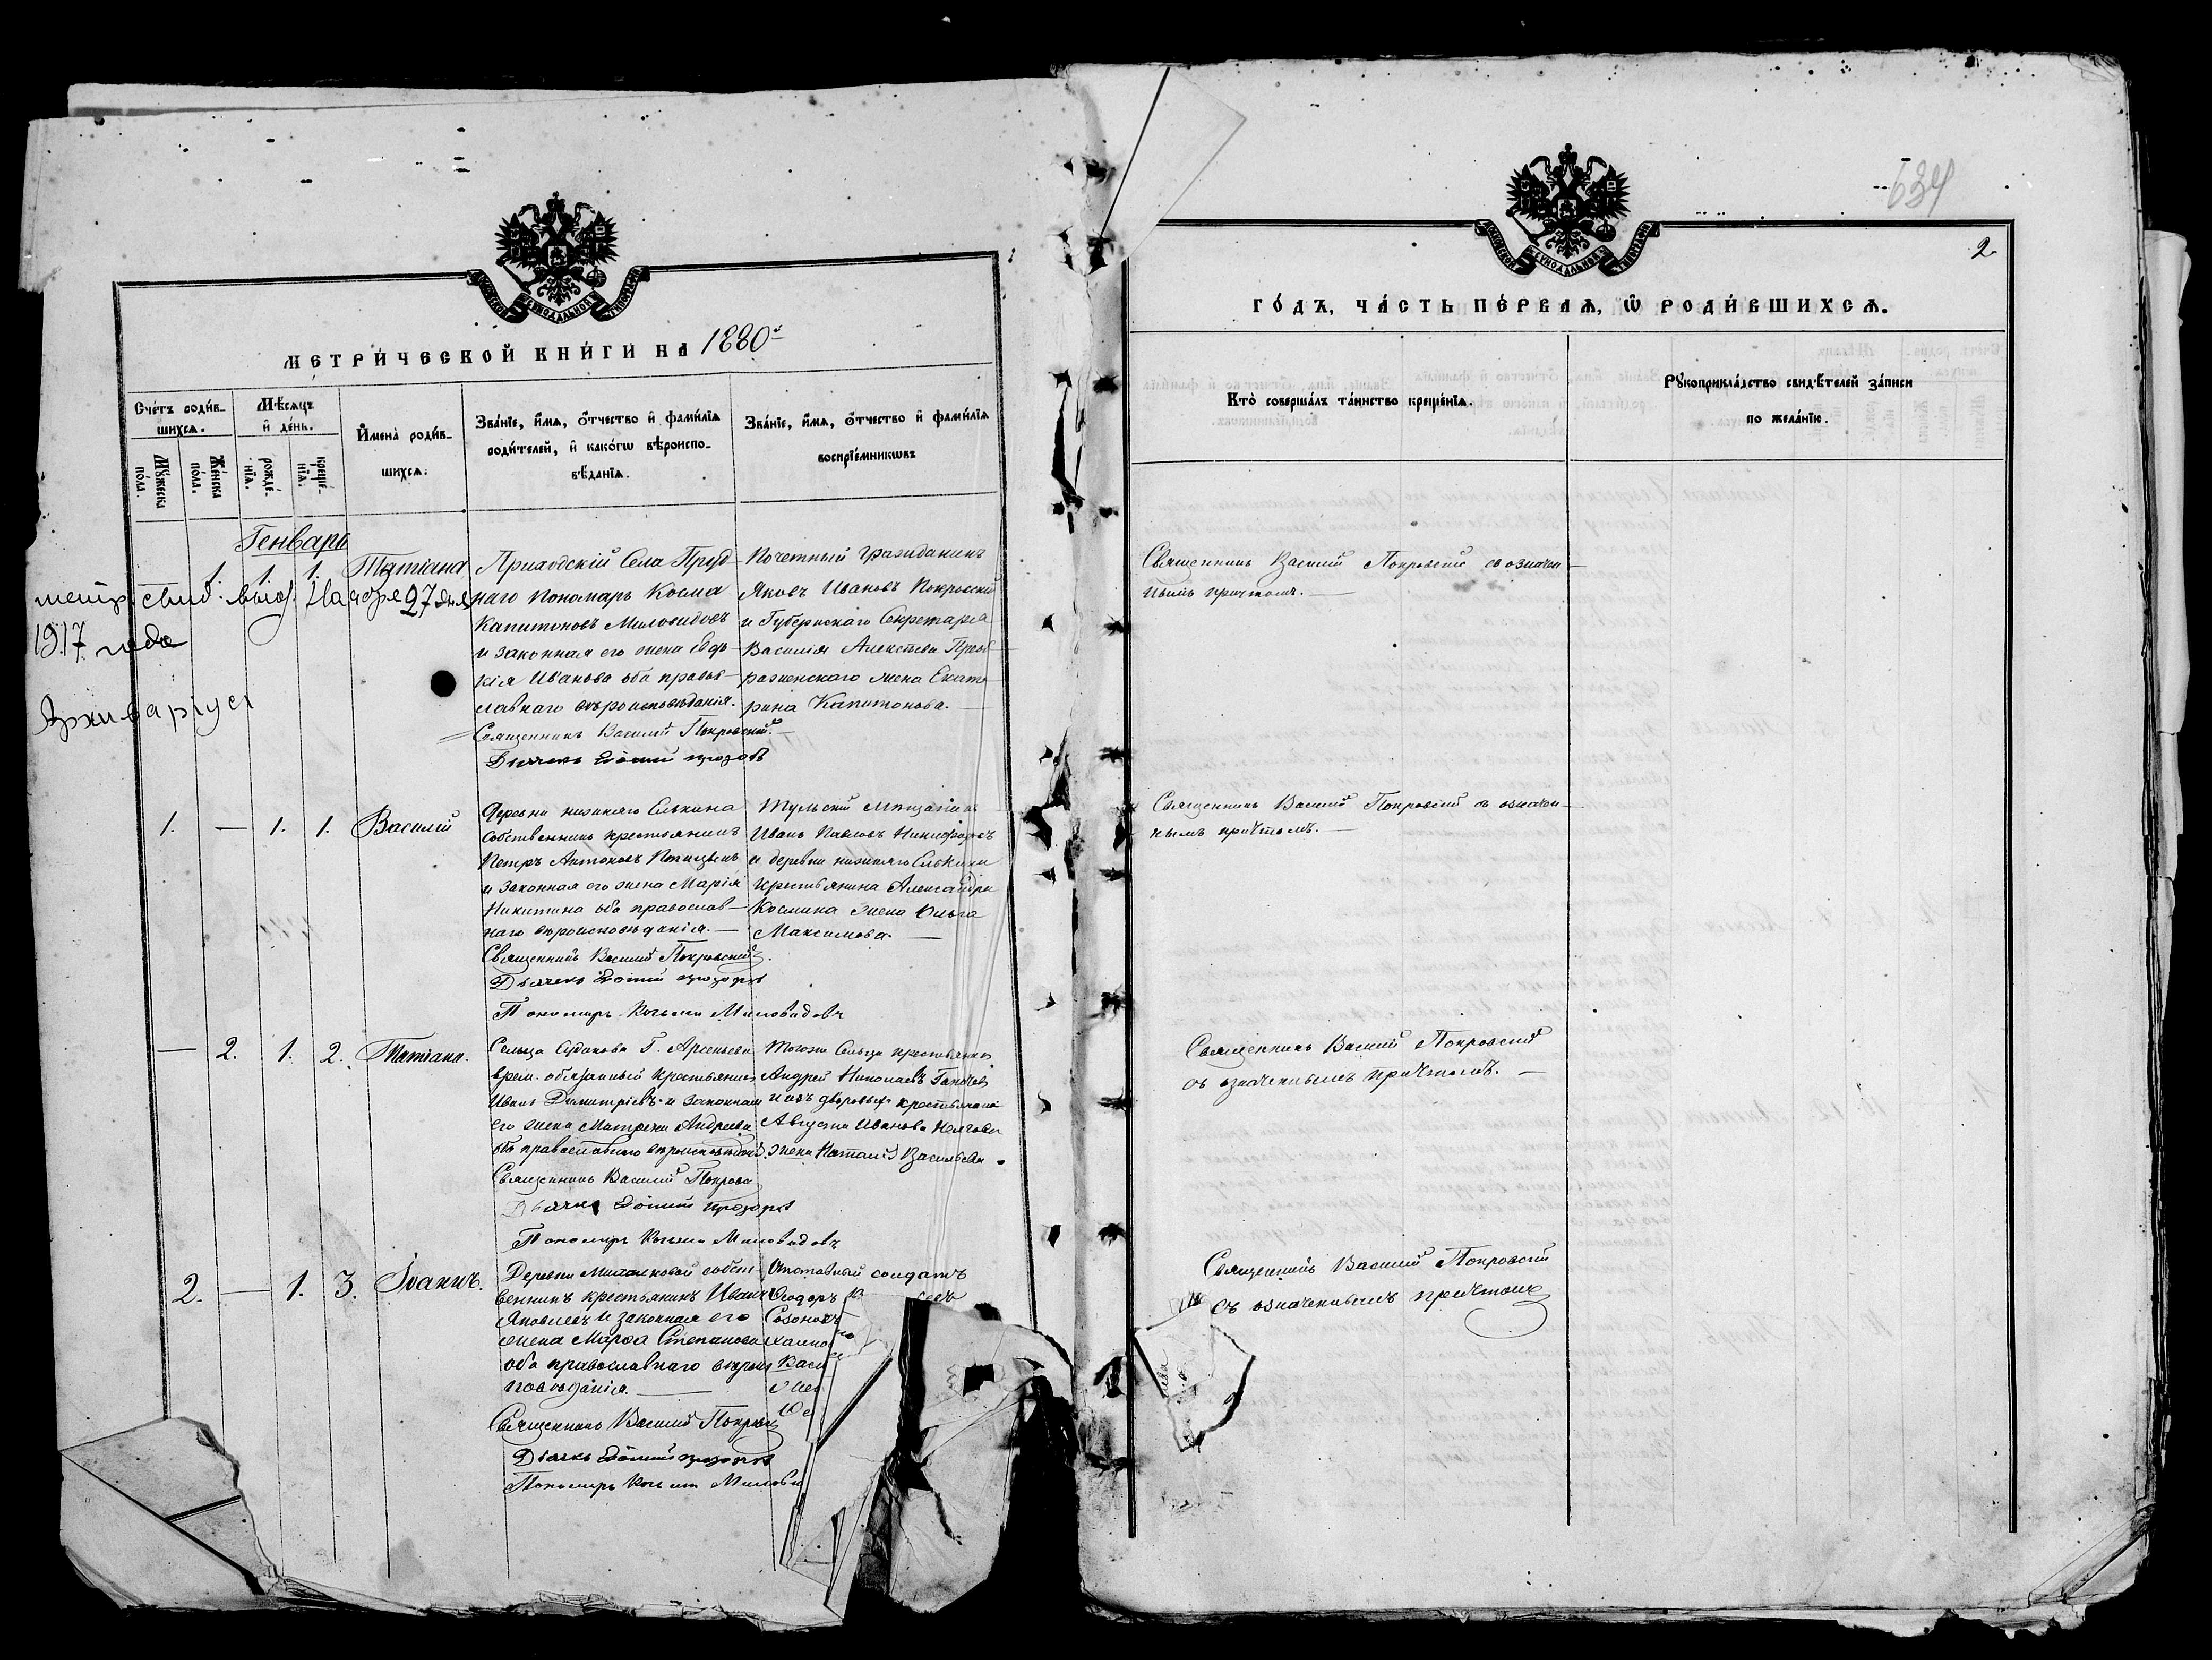 МЕТРИЧЕСКОЙ КНИГИ НА 1880й
Счетъ родив-
шихся.
Мѣсяцъ
и день.
Мужеска
пола.
Женска
пола.
рожде-
нія.
креще-
нія.
Имена родив-
шихся.
Званіе, имя, отчество и фамилія
родителей, и какогѡ вѣроиспо-
вѣданія.
Званіе, имя, отчество и фамилія
воспріемникѡвъ
Генварь
1. 1. 1. Татіана
Приходскій Села Пруд-
наго Пономарь Косма
Капитоновъ Миловидовъ
и законная его жена Евдо-
кія Иванова оба право-
славнаго вѣроисповѣданія.
Священникъ Василій Покровскій.
Дьячекъ
Почетный Гражданинъ
Яковъ Ивановъ Покровскій
и Губернскаго Секретаря
Василія Алексѣева Преоб-
раженскаго жена Екате-
рина Капитонова.
метр. свид. выд. Ноября 27 дня
1917 года
Архиваріусъ
1. — 1. 1. Василій
Деревни нижняго Елькина
собственникъ крестьянинъ
Петръ Антоновъ
и законная его жена Марія
Никитина оба православ-
наго вѣроисповѣданія.
Священникъ Василій Покровскій.
Дьячекъ
Пономарь Косьма Миловидовъ
Тульскій мѣщанинъ
Иванъ Павловъ Никифоровъ
и деревни нижняго Елькина
крестьянина Александра
Космина жена Ольга
Максимова.
— 2. 1. 2. Татіана.
Сельца Судакова Г. Арсеньева
врем. обязанный крестьянинъ
Иванъ Димитріевъ и законная
его жена Матрена Андреева
оба православнаго вѣроисповѣданія.
Священникъ Василій Покровс
Дьячекъ
Пономарь Косьма Миловидовъ
Тогоже Сельца крестьянинъ
Андрей Николаевъ
и изъ дворовыхъ крестьянина
Иванова
жена Наталія Васильева.
2. — 1. 3. Іоаннъ.
Деревни собст-
венникъ крестьянинъ Иванъ
Яковлевъ и законная его
жена Марѳа Степанова
оба православнаго вѣроис-
повѣданія.
Священникъ Василій Покровск
Дьячекъ
Пономарь Косьма Милови
Отставный солдатъ
Ѳеодоръ
Васи
634
2.
ГОДЪ, ЧАСТЬ ПЕРВАЯ, Ѡ РОДИВШИХСЯ.
Кто совершалъ таинство крещенія.
Рукоприкладство свидѣтелей записи
по желанію.
Священникъ Василій Покровскій съ означен-
нымъ причтомъ.
Священникъ Василій Покровскій съ означен-
нымъ причтомъ.
Священникъ Василій Покровскій
съ означеннымъ причтомъ.
Священникъ Василій Покровскій
съ означеннымъ причтомъ